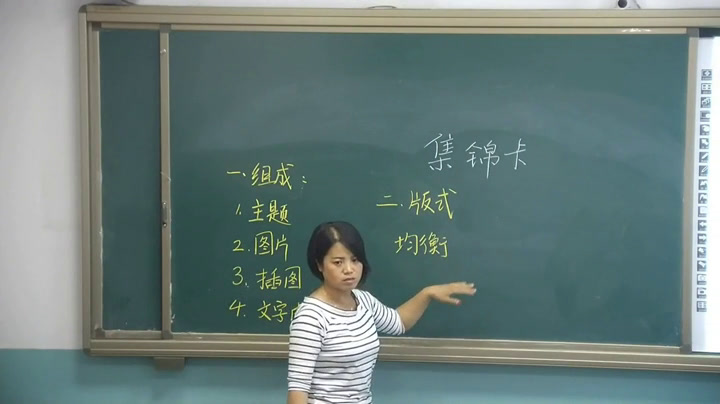 集锦卡
一.组成:
1.主题
2.图片
3.插图
4.文字
二.版式
均衡